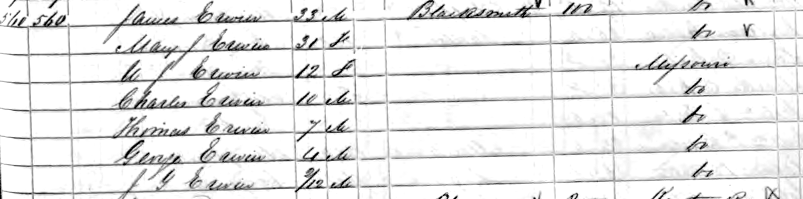 510 560 James Erwin 33 M Blacksmith 100 do
Mary J Erwin 31 F do
M J Erwin 12 F Missouri
Charles Erwin 10 M do
Thomas Erwin 7 M do
George Erwin 4 M do
J G Erwin 9/12 M do